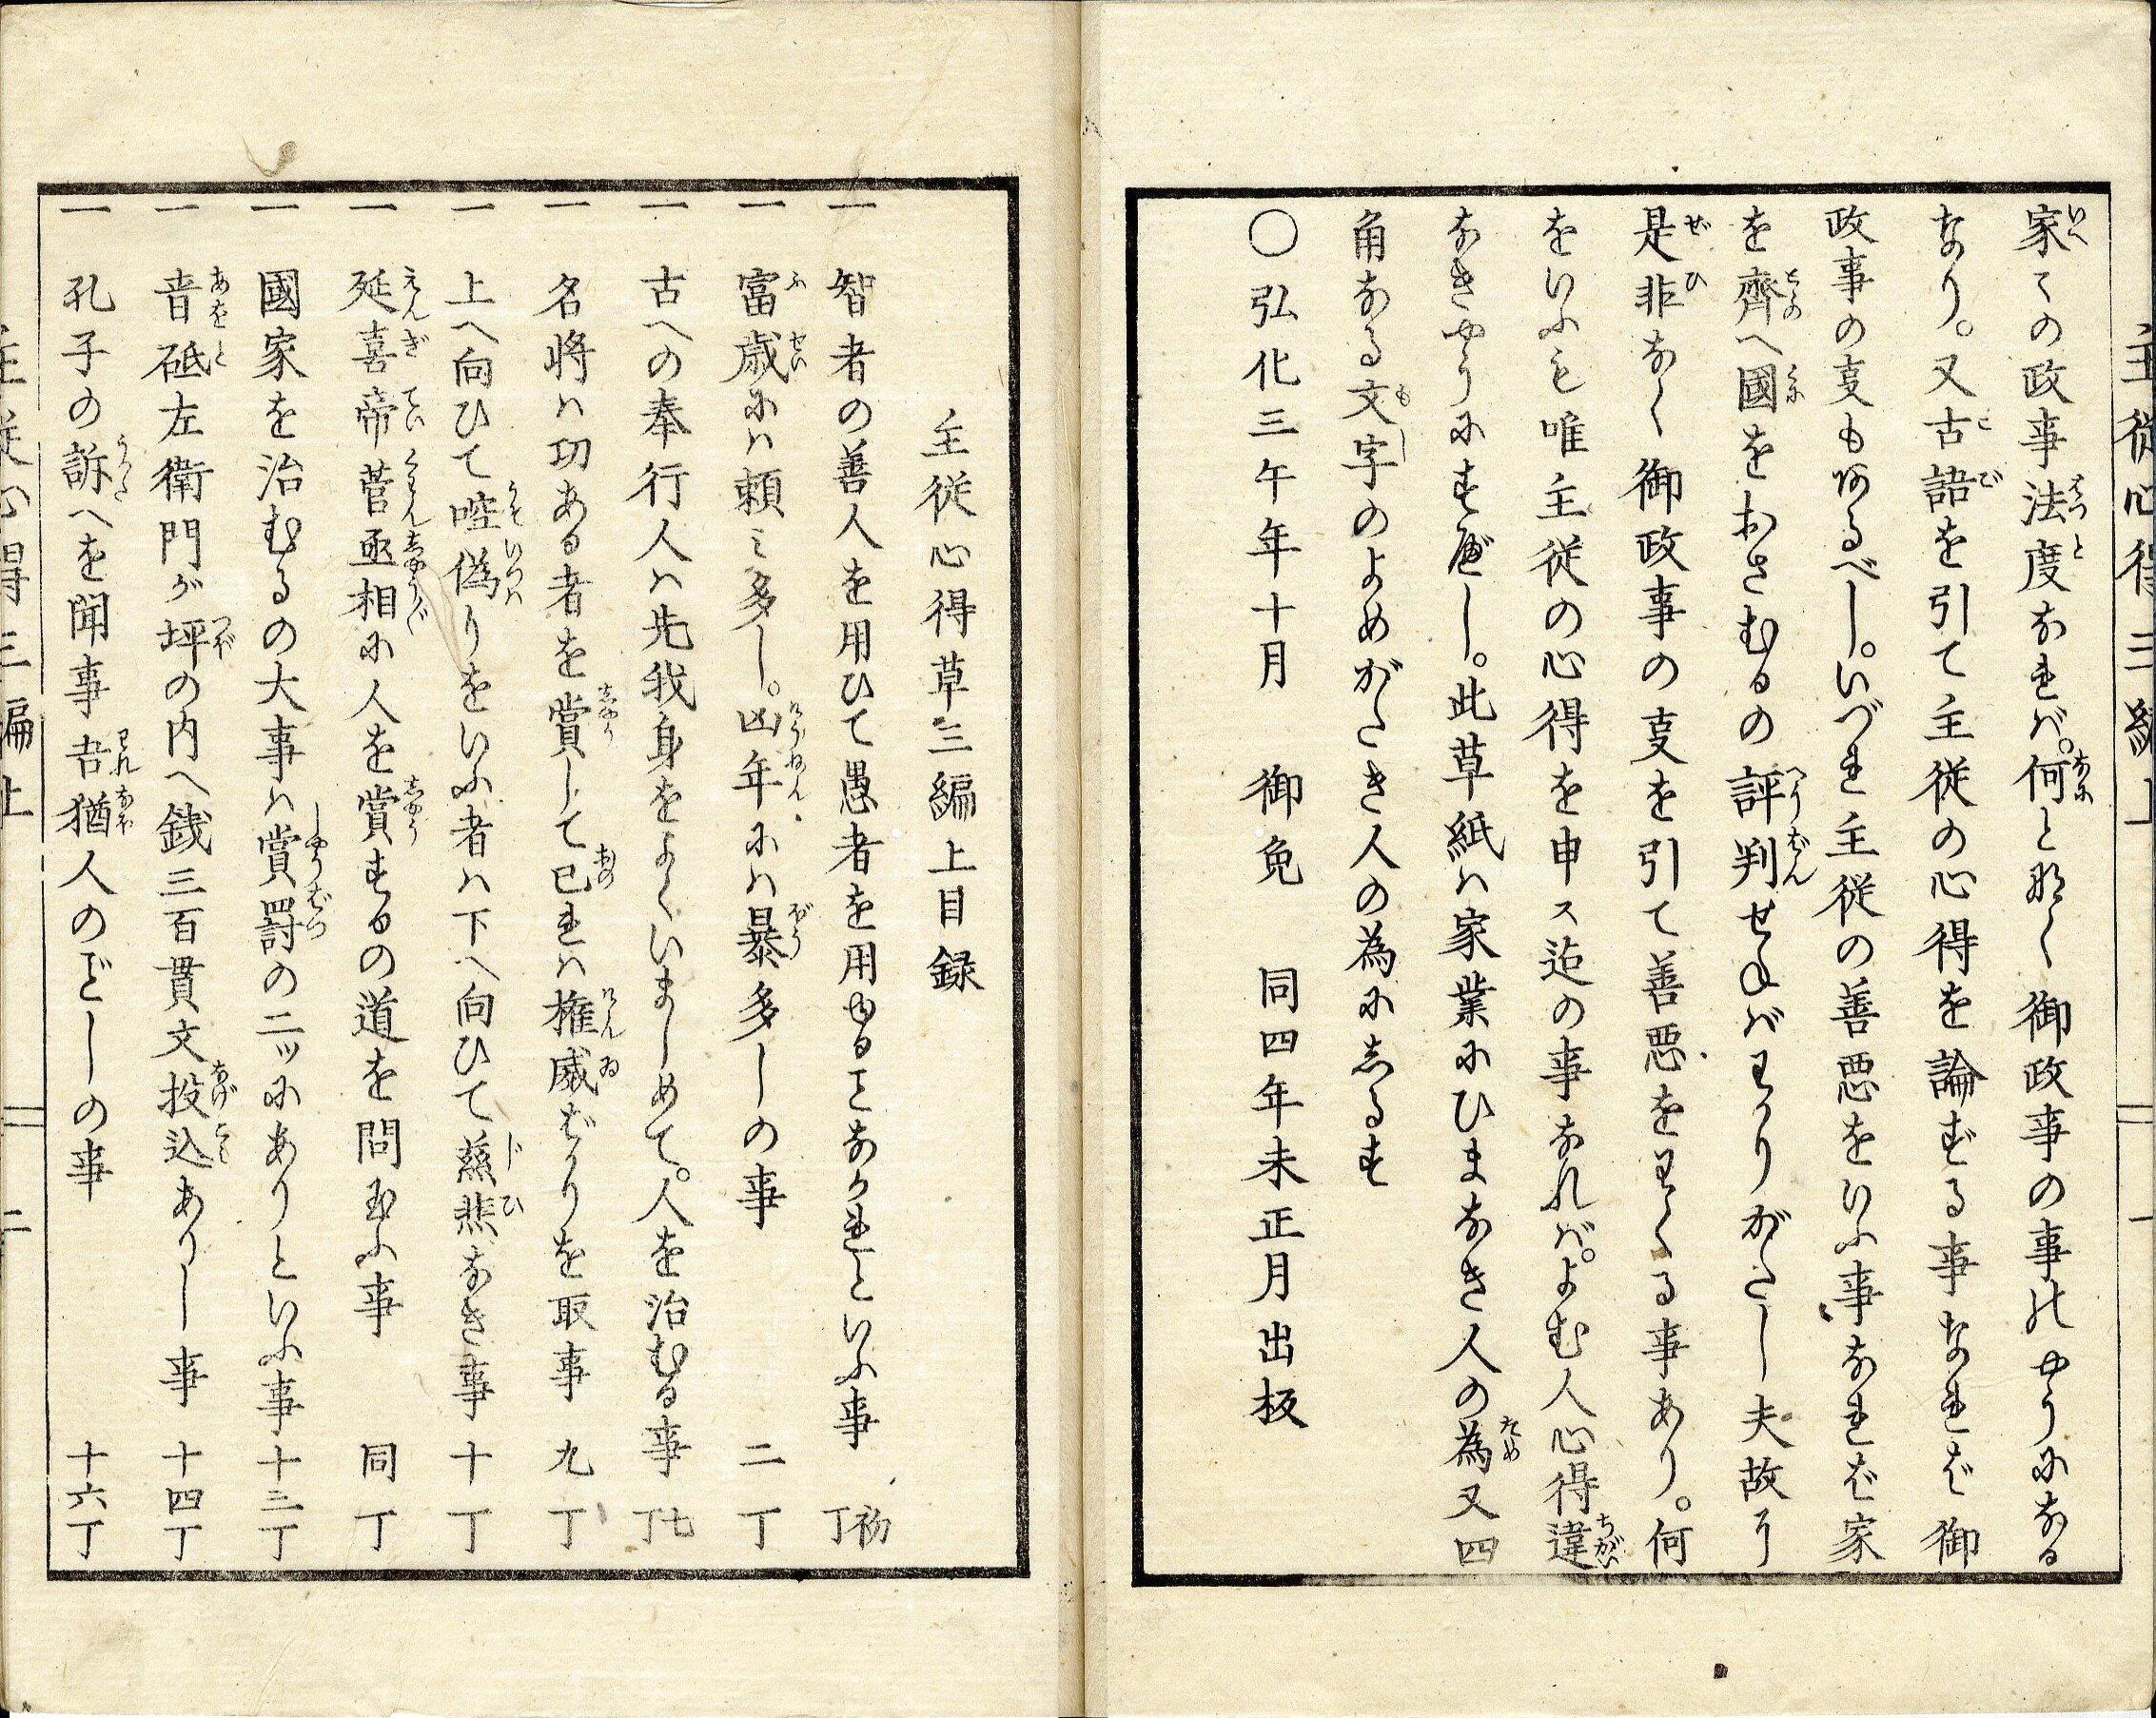 家々の政事法度なれバ。何と取く御政事の事のやうになる
なり。又古語を引て主従の心得を論ずる事なれど御
政事の支も有るべし。いづれ主従の善悪をいふ事なれど家
を齊へ國をおさむるの評判せねバわかりがたし夫故に
是非なく御政事の支を引て善悪をわくる事あり。何
をいふも唯主従の心得を申ス迄の事なれバ。よむ人心得違
なきやうにすべし。此草紙ハ家業にひまなき人の為又四
角なる文字のよめがたき人の為にしるす
〇弘化三午年十月 御免 同四年未正月出板
主従心得三編上 一
主従心得草三編上目録
一 智者の善人を用ひて愚者を用ゆることなかれといふ事 初丁
一 富歳にハ頼ミ多し。凶年にハ暴多しの事 二丁
一 古への奉行人ハ先我身をよくいましめて。人を治むる事 七丁
一 名将ハ功ある者を賞して己れハ権威ばかりを取事 九丁
一 上へ向ひて啌偽りをいふ者ハ下へ向ひて慈悲なき事 十丁
一 延喜帝菅丞相に人を賞するの道を問玉ふ事 同丁
一 國家を治むるの大事ハ賞罰の二ツにありといふ事 十三丁
一 音砥左衛門が坪の内へ銭三百貫文投込ありし事 十四丁
一 孔子の訴へを聞事吾猶人のごとしの事 十六丁
主従心得三編上 二